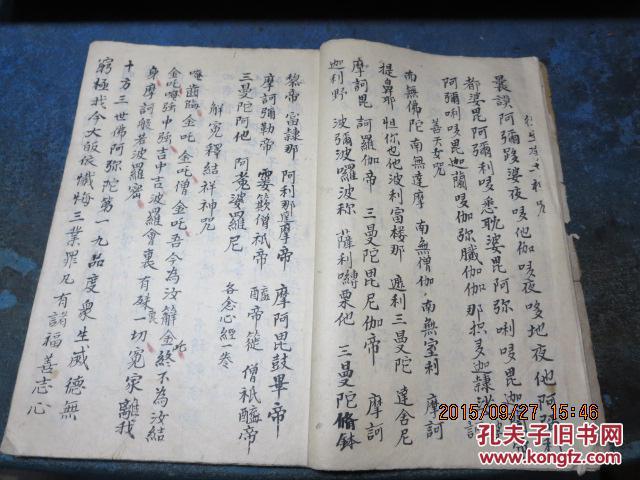 曩謨阿彌哆婆夜哆他伽哆夜哆地夜他阿彌利
都婆毘阿彌利哆悉耽婆毘阿弥唎哆毘迦
阿彌唎哆毘迦蘭哆伽弥膩伽伽那抧多迦隷
善天女咒
南無佛陀 南無達摩 南無僧伽 南無室利 摩訶
提鼻耶 怛你也他 波利富楼那 遮利三曼陀 達舍尼
摩訶毘訶羅伽帝 三曼陀毘尼伽帝 摩訶
迦利野 波彌波囉波祢 薩利嚩栗他 三曼陀脩鉢
黎帝 富隷那 阿利那達摩帝 摩訶毘鼓畢帝
摩訶彌勒帝 婁簸僧祇帝 醯帝簁 僧祇醯帝
三曼陀阿他 阿㝹婆羅尼 各念心經一卷
解冤釋結祥神咒
唵齒臨金吒 金吒僧金吒 吾今為汝解金吒 終不為汝結
金吒唵強中強吉中吉波羅會裏有殊 一切冤家離我
身 摩訶般若波羅密
十方三世佛 阿弥陀第一 九品度眾生 威德無
窮極 我今大皈依 懺悔三業罪 凡有諸福善 志心
2015/09/27 15:46
孔夫子旧书网
KONGFZ.COM